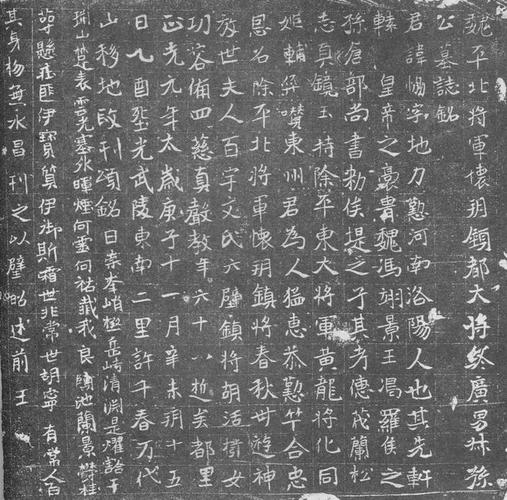 魏平北將軍懷朔鎮都大將終廣男叔孫
公墓誌銘
君諱協字地力懃河南洛陽人也其先軒
轅皇帝之裔胄魏馮翊景王渴羅侯之
孫倉部尚書勑俟堤之子其考儁茂蘭松
志真鏡玉持除平東大將軍黃龍將化同
姬輔弼讚東州君為人猛惠恭懃竿合忠
恩名除平北將軍懷朔鎮將春秋世遊神
放世夫人百字文氏六壁鎮將胡活撥女
功容備四慈真聲教年六十八逝矣都里
正光元年太歲庚子十一月辛未朔十五
日乙酉塟光武陵東南二里許千春万代
山移地改刊頌銘曰崇峯峭極岳崎清淵是耀諮于
瑞山楚表雲光基外暉煙何靈何祐載我良頤池蘭景欝桂
萼懸莊匪伊寶質伊御斯霜世非常世胡寧有常人百
其身物無永昌刊之以壁昭述前王